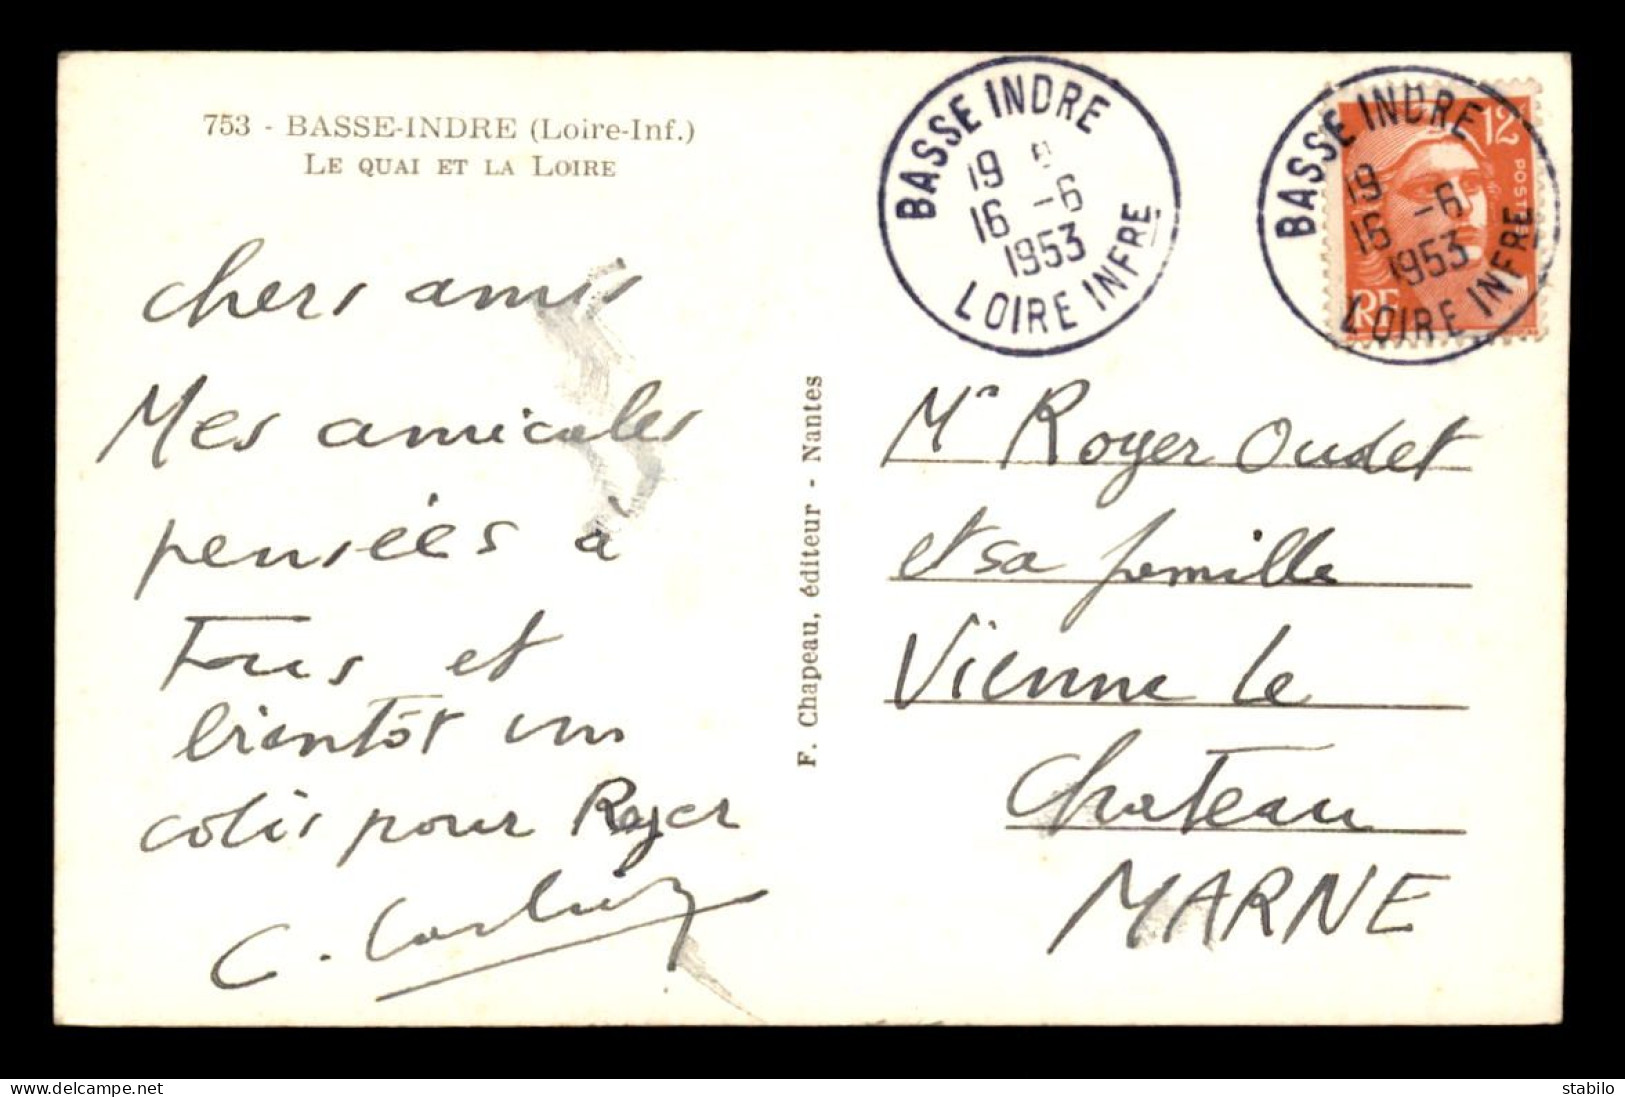 753 - BASSE-INDRE (Loire-Inf.)
LE QUAI ET LA LOIRE
chers amis
Mes amicales
pensées à
Tous et
bientôt un
colis pour Royer
C.
F. Chapeau, éditeur - Nantes
BASSE INDRE
19
16 -6
1953
LOIRE INFRE
BASSE INDRE
19
16 -6
1953
LOIRE INFRE
12F
POSTES
RF
Mr Royer Oudet
et sa famille
Vienne le
Chateau
MARNE
delcampe.net
stabilo